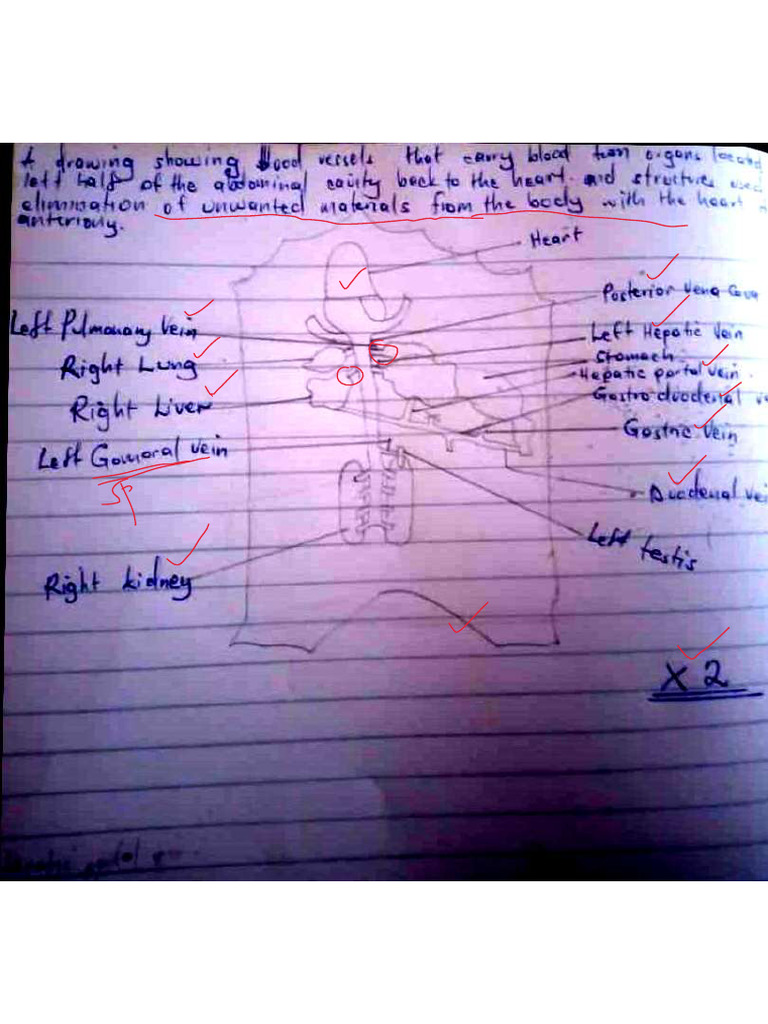 A drawing showing blood vessels that carry blood from organs located
left half of the abdominal cavity back to the heart and structures used
elimination of unwanted materials from the body with the heart
anteriorly.
Heart
Posterior vena cava
Left Pulmonary vein
Left Hepatic vein
Stomach
Right Lung
Hepatic portal vein
Gastro duodenal
Right Liver
Gastric vein
Left Gomoral vein
SP
Duodenal vei
Left testis
Right kidney
X 2